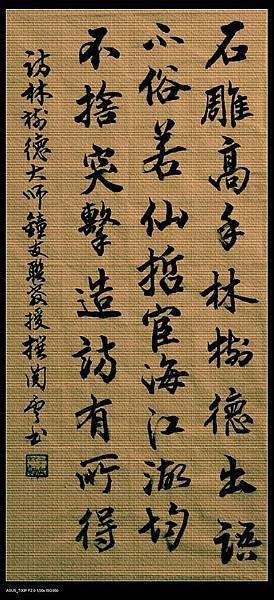 石雕高手林樹德出語
不俗若仙哲宦海江湖均
不捨突擊造訪有所得
訪林樹德大師鐘友聯教授撰閑雲書
ASUS_T00P F2.0 1/30s ISO350